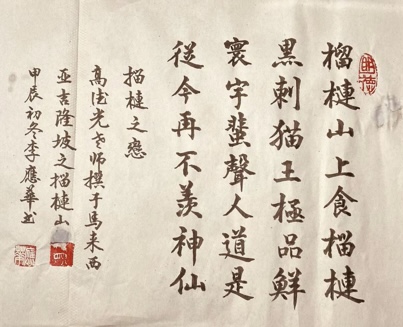 榴槤山上食榴槤
黑刺猫王極品鮮
寰宇蜚聲人道是
從今再不羨神仙
榴槤之戀
高德光老师撰于馬来西
亚吉隆坡之榴槤山
甲辰初冬李應華书